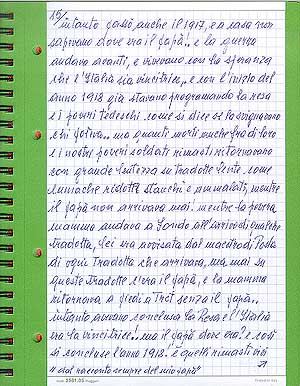 15/
intanto passò anche il 1917, e a casa non
sapevano dove era il papà!.. e la guerra
andava avanti, e vivevano con la speranza
che l'Italia sia vincitrice, e con l'inizio del
anno 1918 già stavano programmando la resa
e i poveri tedeschi come si dice se la svignavano
chi poteva.. ma quanti morti anche fra di loro
e i nostri poveri soldati rimasti ritornavano
con grande lentezza su tradotte lente come
lumache ridotti stanchi e ammalati, mentre
il papà non arrivava mai. mentre la povera
mamma andava a Condo all'arrivo di qualche
tradotta, lei era avvisata dal maestro di Posta
di ogni Tradotta che arrivava, ma mai su
queste Tradotte c'era il papà, e la mamma
ritornava a piedi a casa senza il papà..
intanto avevano conclusa la Resa e l'Italia
era la vincitrice!.. ma il papà dove era? e così
si concluse l'anno 1918. e quelli rimasti vivi
"dal racconto sempre del mio papà"